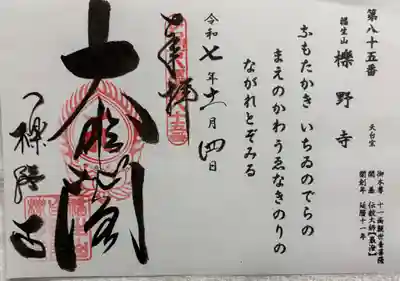 第八十五番
福生山
櫟野寺
天台宗
御本尊 十一面観世音菩薩
開基 伝教大師【最澄】
開創年 延暦十一年
なもたかき いちゐのでらの
まえのかわうゑなきのりの
ながれとぞみる
令和七年十一月四日
奉拝
大悲閣
櫟野寺